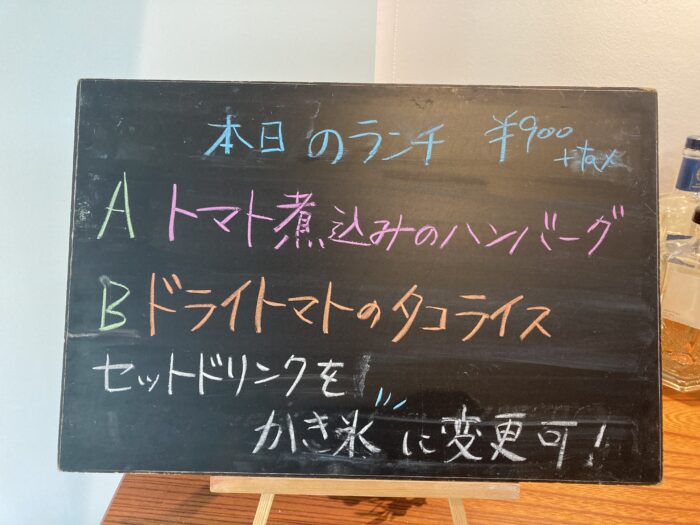 本日のランチ ¥900
+tax
A トマト煮込みのハンバーグ
B ドライトマトのタコライス
セットドリンクを
かき氷に変更可!